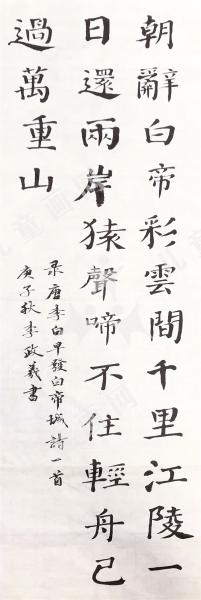 朝辭白帝彩雲間千里江陵一
日還兩岸猿聲啼不住輕舟已
過萬重山
录唐李白早發白帝城詩一首
庚子秋李政羲書